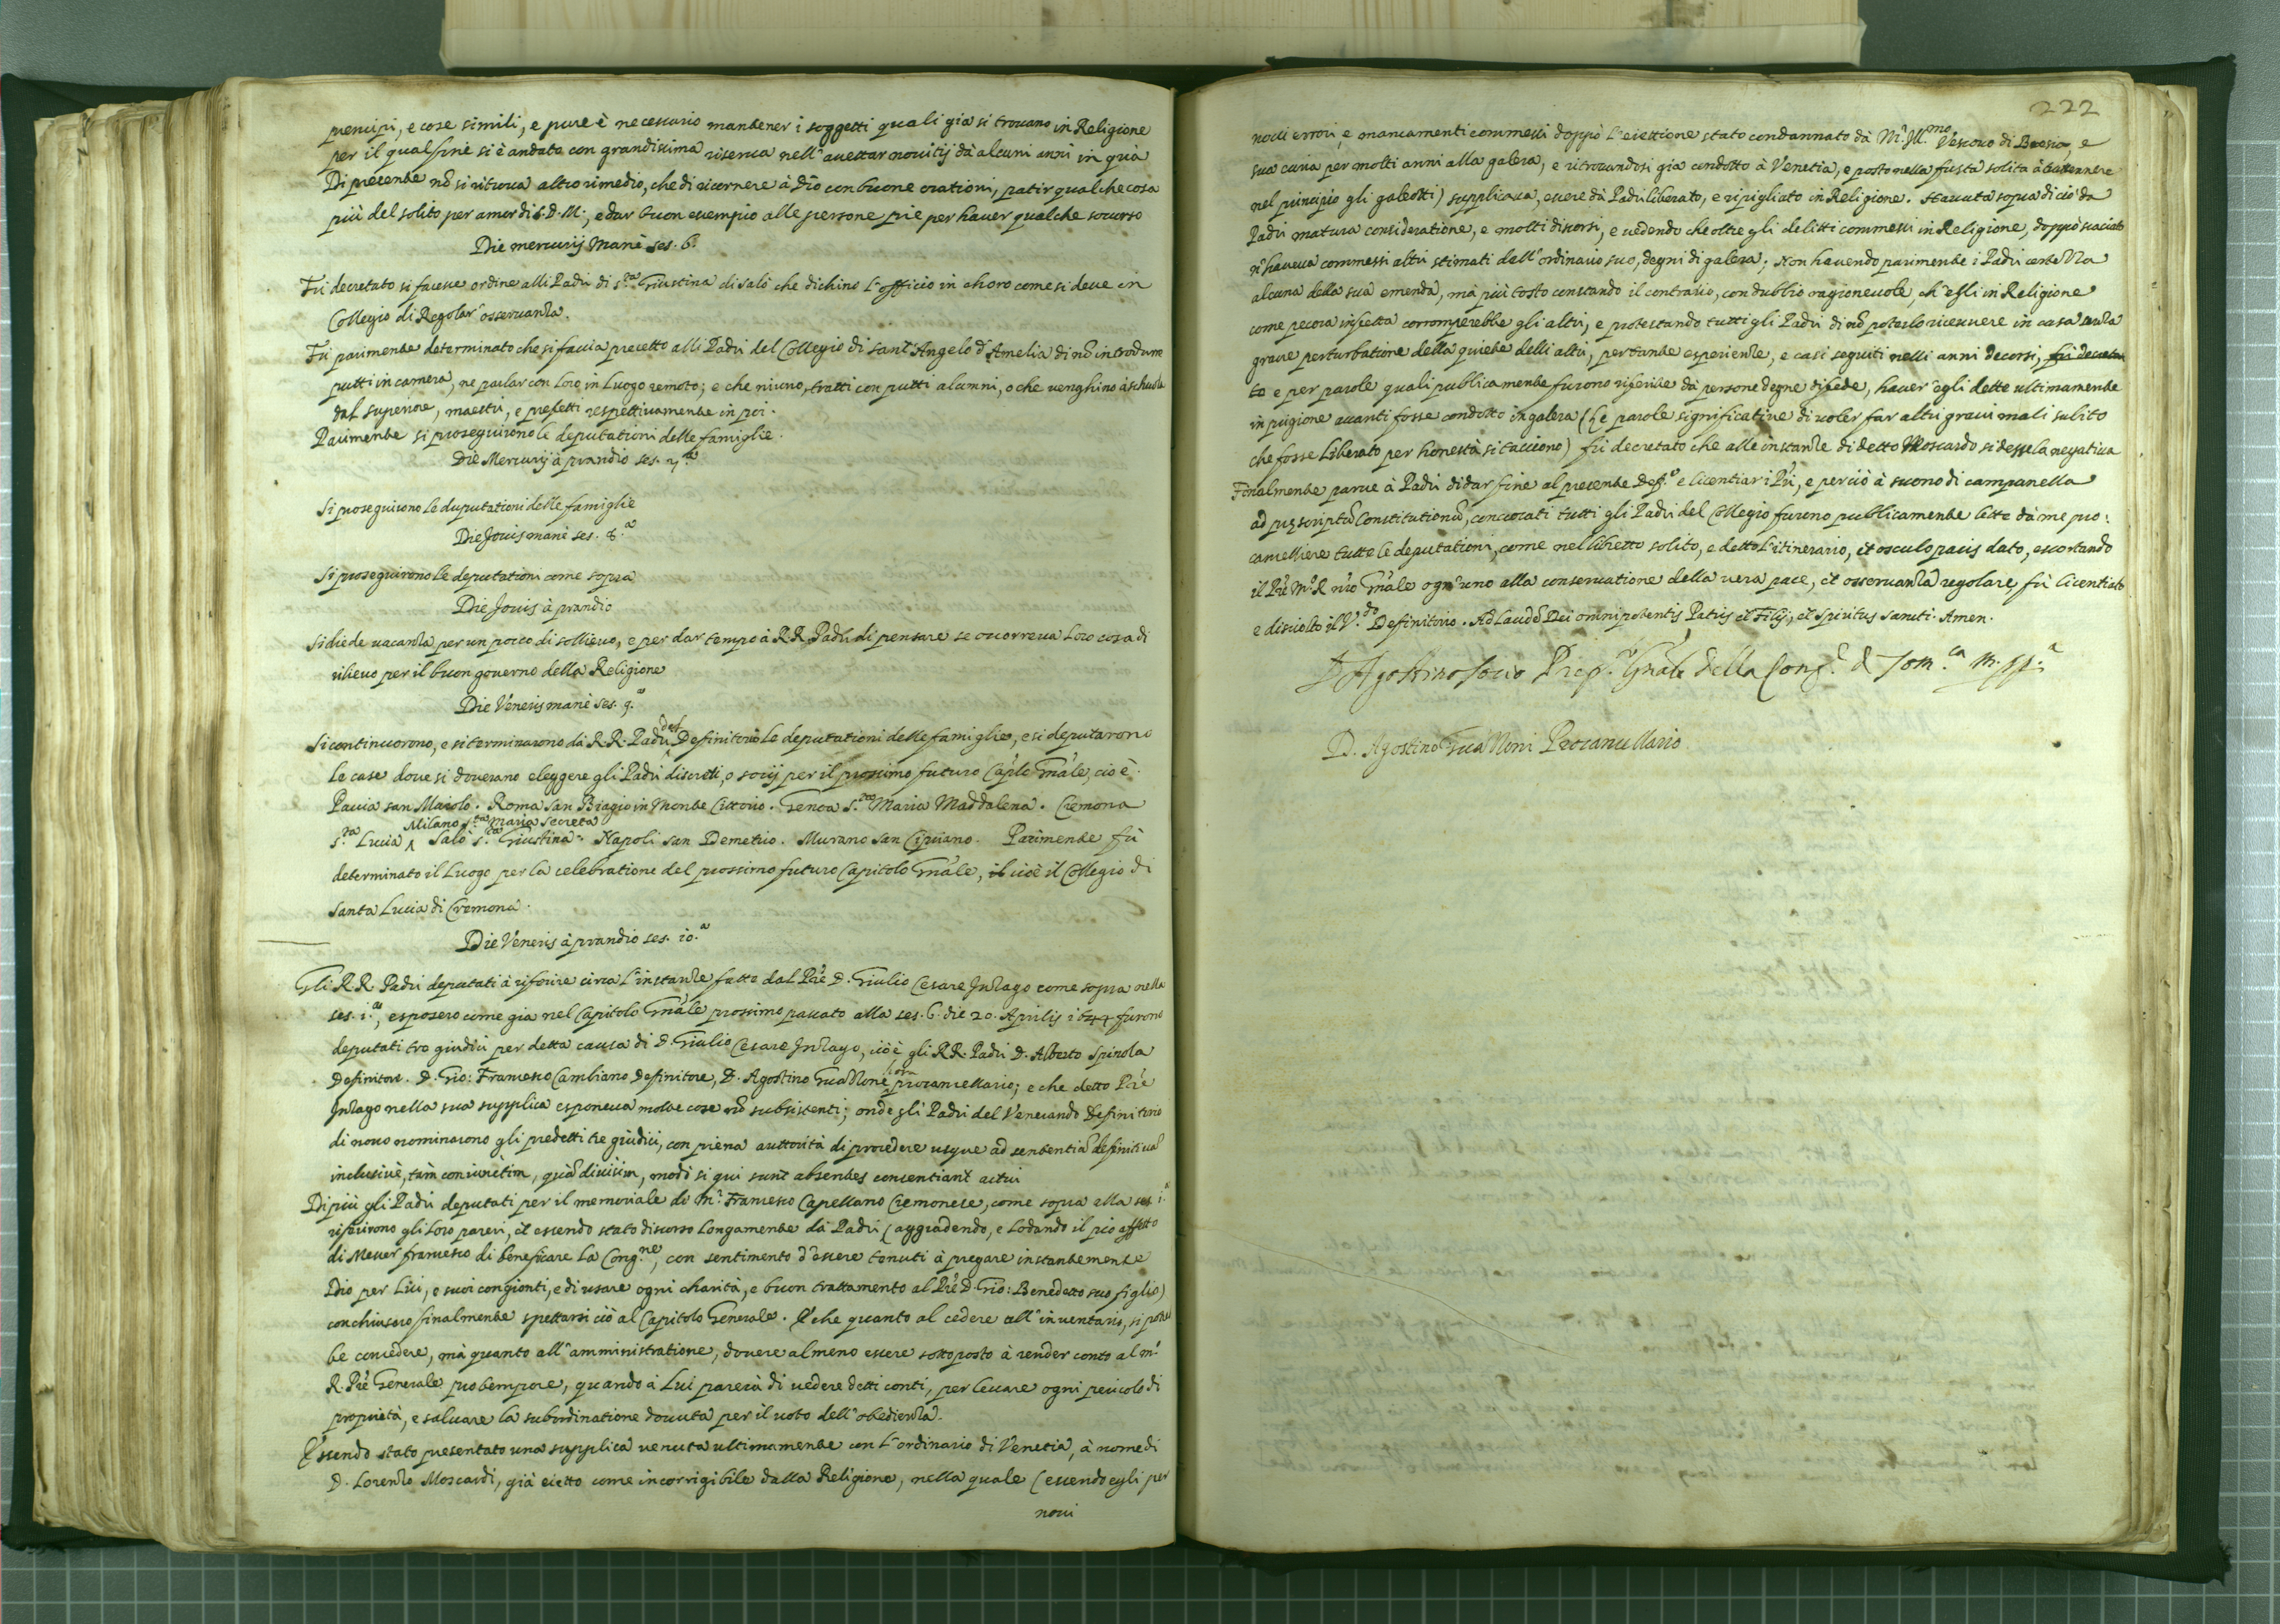 prencipi, e cose simili, e pure è necessario mantener i soggetti quali già si trovano in Religione
per il qual fine si è andato con grandissima riserva nell'accettar novitij dà alcuni anni in quà
Di presente nõ si ritrova altro rimedio, che di ricorrere à Dio con buone orationi, patir qualche cosa
più del solito per amor di S. D. M., e dar buon essempio alle persone pie per haver qualche socorso
Die mercurij Manè ses. 6.
Fù decretato si facesse ordine alli Padri di s.ta Giustina di Salò che dichino l'officio in choro come si deve in
Collegio di Regolar osservanza.
Fù parimente determinato che si faccia precetto alli Padri del Collegio di Sant'Angelo d'Amelia di nõ introdurre
putti in camera, ne parlar con loro in luogo remoto; e che niuno tratti con putti alumni, o che venghino à schuola
dal superiore, maestri, e prefetti respettivamente in poi.
Parimente si proseguirono le deputationi delle famiglie.
Die Mercurij à prandio ses. 7.a
Si proseguirono le duputationi delle famiglie
Die Jovis manè ses. 8.a
Si proseguirono le deputationi come sopra
Die Jovis à prandio
Si diede vacanza per un poco di sollievo, e per dar tempo à R.R. Padri di pensare se occorreva loro cosa di
rilievo per il buon governo della Religione
Die Veneris manè ses. 9.a
Si continuorono, e si terminarono dà R.R. Padri del Definitorio le deputationi delle famiglie, e si deputarono
le case dove si doverano eleggere gli Padri discreti, o socij per il prossimo futuro Caplo Gnãle, cio è
Pavia san Maiolo. Roma San Biagio in Monte Cittorio. Genoa S.ta Maria Maddalena. Cremona
s.ta Lucia Milano s.ta Maria Secreta Salò s.ta Giustina. Napoli san Demetrio. Murano San Cipriano. Parimente fù
determinato il Luogo per la celebratione del prossimo futuro Capitolo Gnãle, il cioè il Collegio di
Santa Lucia di Cremona.
Die Veneris à prandio ses. 10.a
Gli R.R. Padri deputati à riferire circa l'instanze fatto dal Prè D. Giulio Cesare Inzago come sopra nella
ses. i.a, esposero come gia nel Capitolo Gnãle prossimo passato alla ses. 6. die 20. Aprilis 1644 furono
deputati tre giudici per detta causa di D. Giulio Cesare Inzago, cioè gli RR. Padri D. Alberto Spinola
Definitore. D. Gio: Francesco Cambiano Definitore, D. Agostino Guazzone hora procancellario; e che detto Prè
Inzago nella sua supplica esponeva molte cose nõ subsistenti; onde gli Padri del Venerando Definitorio
di novo nominarono gli predetti tre giudici, con piena auttorità di procedere usque ad sententiã definitivã
inclusivè, tàm coniunctim, quã divisim, modò si qui sunt absentes consentiant actui
Di più gli Padri deputati per il memoriale di m.r Francesco Capellano Cremonese, come sopra alla ses. i.a
riferirono gli loro pareri, et essendo stato discorso longamente dà Padri (aggradendo, e lodando il pio affetto
di Messer francesco di beneficare la Cong.ne, con sentimento d'essere tenuti à pregare instantemente
Dio per lui, e suoi congionti, e di usare ogni charità, e buon trattamento al Prè D. Gio: Benedetto suo figlio)
conchiusero finalmente spettarsi ciò al Capitolo Generale. E che quanto al cedere all'inventario, si potreb
be concedere, mà quanto all'amministratione, dovere almeno essere sottoposto à render conto al m.o
R. Prè Generale pro tempore, quando à Lui parerà di vedere detti conti, per levare ogni pericolo di
proprietà, e salvare la subordinatione dovuta per il voto dell'obedienza.
Essendo stato presentato una supplica venuta ultimamente con l'ordinario di Venetia, à nome di
D. Lorenzo Moscardi, già eietto come incorrigibile dalla Religione, nella quale (essendo egli per
novi
222
novi errori, e mancamenti commessi doppò l'eiettione stato condannato dà M.r Ill.mo Vescovo di Brescia, e
sua curia per molti anni alla galera, e ritrovandosi già condotto à Venetia, e posto nella fusta solita à trattenere
nel principio gli galeotti) supplicava, essere dà Padri liberato, e ripigliato in Religione. Havuta sopra di ciò da
Padri matura consideratione, e molti discorsi, e vedendo che oltre gli delitti commessi in Religione, doppò scaciato
n'haveva commessi altri stimati dall'ordinario suo, degni di galera; Non havendo parimente i Padri certezza
alcuna della sua emenda, mà più tosto constando il contrario, con dubbio ragionevole, ch'egli in Religione
come pecora infetta corromperebbe gli altri, e protestando tutti gli Padri di nõ poterlo ricevere in casa senza
grave perturbatione della quiete delli altri, per tante esperienze, e casi seguiti nelli anni decorsi, fù decreta
to e per parole quali publicamente furono riferite dà persone degne di fede, haver egli dette ultimamente
in prigione avanti fosse condotto in galera (le parole significative di voler far altri gravi mali subito
che fosse liberato per honestà si tacciono) fù decretato che alle instanze di detto Moscardo si desse la negativa
Finalmente parve à Padri di dar fine al presente Def.o e licentiar i Prì, e perciò à suono di campanella
ad prescriptũ Constitutionũ, convocati tutti gli Padri del Collegio furono publicamente lette dà me pro:
cancelliere tutte le deputationi, come nel libretto solito, e detto l'itinerario, et osculo pacis dato, essortando
il Prè M.o R. nrõ Gnãle ogn'uno alla conservatione della vera pace, et osservanza regolare, fù licentiato
e disciolto il V.do Definitorio. Ad laudẽ Dei omnipotentis Patris et Filij, et Spiritus Sancti. Amen.
D Agostino Socio Prep.o Gnale della Cong.e di Som.ca m. pp.a
D. Agostino Guazzoni Procancellario